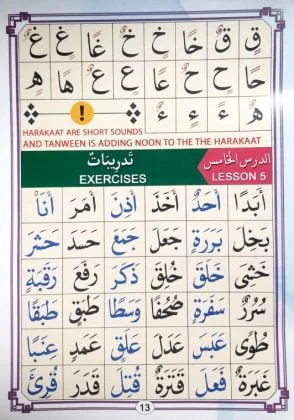 قٍ قٌ خًا خٍ خٌ غًا غٍ غٌ
حًا حٍ حٌ عًا عٍ عٌ هًا هٍ
هٌ ءً ءٍ ءٌ
!
HARAKAAT ARE SHORT SOUNDS
AND TANWEEN IS ADDING NOON TO THE THE HARAKAAT
الدرس الخامس تَدرِيبَاتٌ
LESSON 5 EXERCISES
أَبَدًا أَحَدٌ أَخَذَ أَذِنَ أَمَرَ أَنَا
بَخِلَ بَرَرَةٍ جَعَلَ جَمَعَ حَسَدَ حَشَرَ
خَشِيَ خَلَقَ خُلِقَ ذَكَرَ رَفَعَ رَقَبَةٍ
سُرُرٌ سَفَرَةٍ صُحُفًا وَسَطًا طَبَقٍ طَبَقًا
طُوًى عَبَسَ عَدَلَ عَلَقٍ عَمَدٍ عِنَبًا
غَبَرَةٌ فَعَلَ قَتَرَةٌ قُتِلَ قَدَرَ قُرِئَ
13